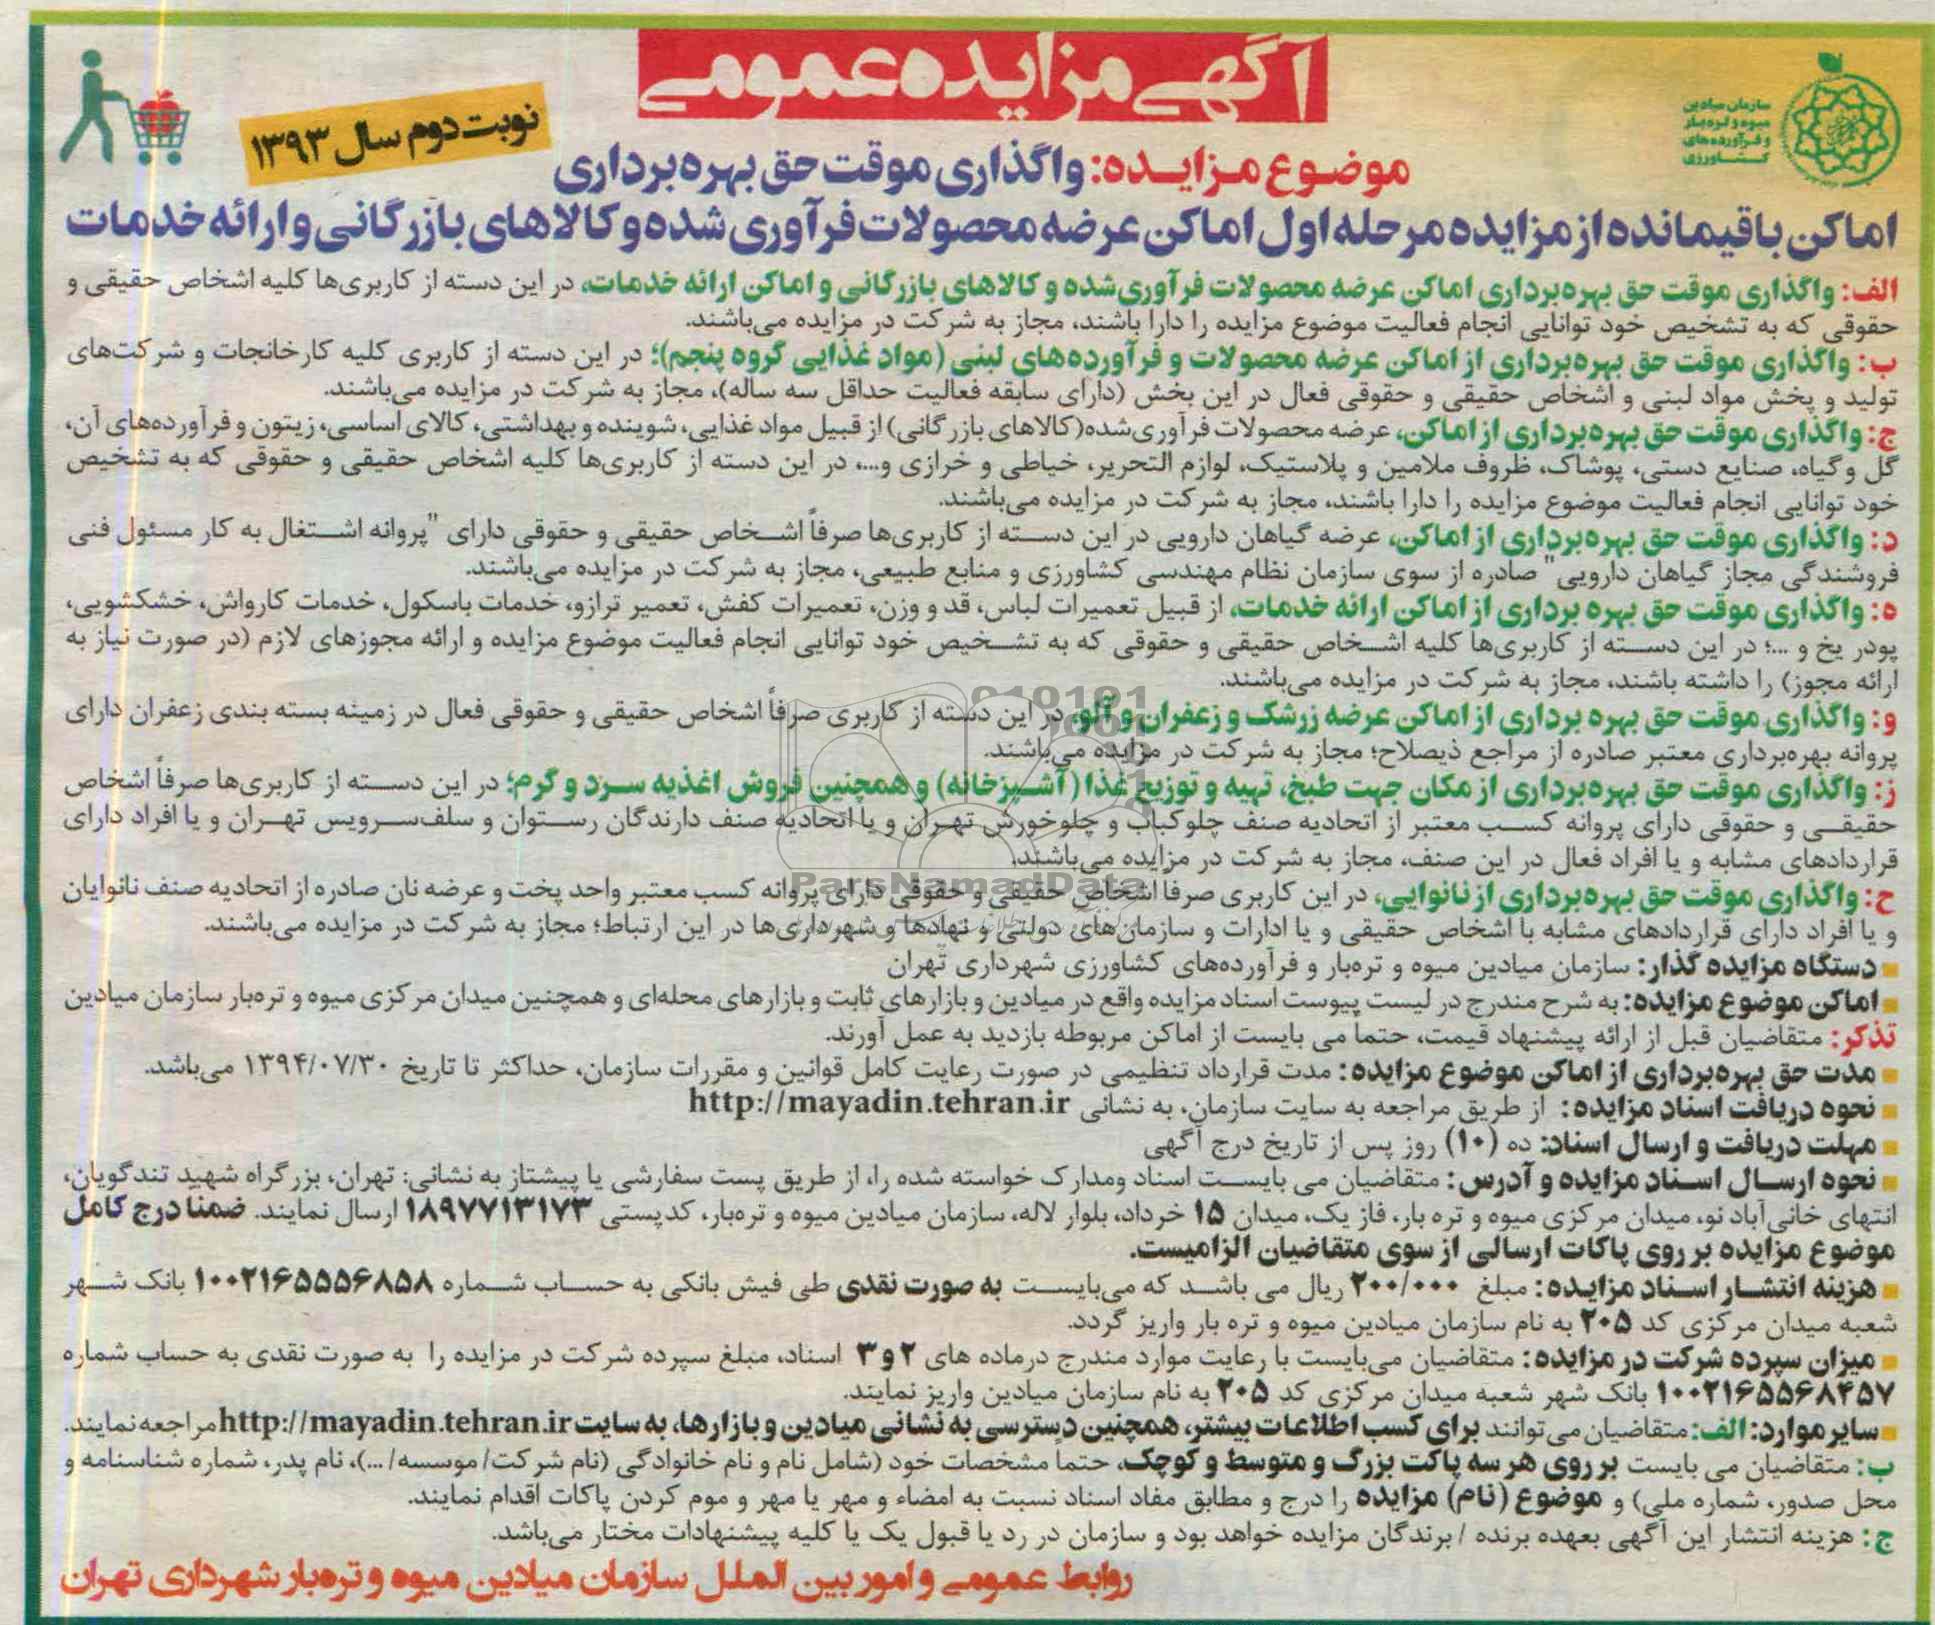 آگهی مزایده عمومی
سازمان میادین
میوه و تره‌بار
و فرآورده‌های
کشاورزی
نوبت دوم سال ۱۳۹۳
موضوع مزایده: واگذاری موقت حق بهره‌برداری
اماکن باقیمانده از مزایده مرحله اول اماکن عرضه محصولات فرآوری شده و کالاهای بازرگانی و ارائه خدمات
الف: واگذاری موقت حق بهره‌برداری اماکن عرضه محصولات فرآوری‌شده و کالاهای بازرگانی و اماکن ارائه خدمات، در این دسته از کاربری‌ها کلیه اشخاص حقیقی و
حقوقی که به تشخیص خود توانایی انجام فعالیت موضوع مزایده را دارا باشند، مجاز به شرکت در مزایده می‌باشند.
ب: واگذاری موقت حق بهره‌برداری از اماکن عرضه محصولات و فرآورده‌های لبنی (مواد غذایی گروه پنجم)؛ در این دسته از کاربری کلیه کارخانجات و شرکت‌های
تولید و پخش مواد لبنی و اشخاص حقیقی و حقوقی فعال در این بخش (دارای سابقه فعالیت حداقل سه ساله)، مجاز به شرکت در مزایده می‌باشند.
ج: واگذاری موقت حق بهره‌برداری از اماکن، عرضه محصولات فرآوری‌شده(کالاهای بازرگانی) از قبیل مواد غذایی، شوینده و بهداشتی، کالای اساسی، زیتون و فرآورده‌های آن،
گل و گیاه، صنایع دستی، پوشاک، ظروف ملامین و پلاستیک، لوازم التحریر، خیاطی و خرازی و...، در این دسته از کاربری‌ها کلیه اشخاص حقیقی و حقوقی که به تشخیص
خود توانایی انجام فعالیت موضوع مزایده را دارا باشند، مجاز به شرکت در مزایده می‌باشند.
د: واگذاری موقت حق بهره‌برداری از اماکن، عرضه گیاهان دارویی در این دسته از کاربری‌ها صرفاً اشخاص حقیقی و حقوقی دارای "پروانه اشتغال به کار مسئول فنی
فروشندگی مجاز گیاهان دارویی" صادره از سوی سازمان نظام مهندسی کشاورزی و منابع طبیعی، مجاز به شرکت در مزایده می‌باشند.
ه: واگذاری موقت حق بهره برداری از اماکن ارائه خدمات، از قبیل تعمیرات لباس، قد و وزن، تعمیرات کفش، تعمیر ترازو، خدمات باسکول، خدمات کارواش، خشکشویی،
پودر یخ و ...؛ در این دسته از کاربری‌ها کلیه اشخاص حقیقی و حقوقی که به تشخیص خود توانایی انجام فعالیت موضوع مزایده و ارائه مجوزهای لازم (در صورت نیاز به
ارائه مجوز) را داشته باشند، مجاز به شرکت در مزایده می‌باشند.
و: واگذاری موقت حق بهره برداری از اماکن عرضه زرشک و زعفران و آلو، در این دسته از کاربری صرفاً اشخاص حقیقی و حقوقی فعال در زمینه بسته بندی زعفران دارای
پروانه بهره‌برداری معتبر صادره از مراجع ذیصلاح؛ مجاز به شرکت در مزایده می‌باشند.
ز: واگذاری موقت حق بهره‌برداری از مکان جهت طبخ، تهیه و توزیع غذا (آشپزخانه) و همچنین فروش اغذیه سرد و گرم؛ در این دسته از کاربری‌ها صرفاً اشخاص
حقیقی و حقوقی دارای پروانه کسب معتبر از اتحادیه صنف چلوکباب و چلوخورش تهران و یا اتحادیه صنف دارندگان رستوان و سلف‌سرویس تهران و یا افراد دارای
قراردادهای مشابه و یا افراد فعال در این صنف، مجاز به شرکت در مزایده می‌باشند.
ParsNamadData
ح: واگذاری موقت حق بهره‌برداری از نانوایی، در این کاربری صرفاً اشخاص حقیقی و حقوقی دارای پروانه کسب معتبر واحد پخت و عرضه نان صادره از اتحادیه صنف نانوایان
و یا افراد دارای قراردادهای مشابه با اشخاص حقیقی و یا ادارات و سازمان‌های دولتی و نهادها و شهرداری‌ها در این ارتباط؛ مجاز به شرکت در مزایده می‌باشند.
دستگاه مزایده گذار: سازمان میادین میوه و تره‌بار و فرآورده‌های کشاورزی شهرداری تهران
اماکن موضوع مزایده: به شرح مندرج در لیست پیوست اسناد مزایده واقع در میادین و بازارهای ثابت و بازارهای محله‌ای و همچنین میدان مرکزی میوه و تره‌بار سازمان میادین
تذکر: متقاضیان قبل از ارائه پیشنهاد قیمت، حتماً می بایست از اماکن مربوطه بازدید به عمل آورند.
مدت حق بهره‌برداری از اماکن موضوع مزایده: مدت قرارداد تنظیمی در صورت رعایت کامل قوانین و مقررات سازمان، حداکثر تا تاریخ ۱۳۹۴/۰۷/۳۰ می‌باشد.
نحوه دریافت اسناد مزایده: از طریق مراجعه به سایت سازمان، به نشانی http://mayadin.tehran.ir
مهلت دریافت و ارسال اسناد: ده (۱۰) روز پس از تاریخ درج آگهی
نحوه ارسال اسناد مزایده و آدرس: متقاضیان می بایست اسناد ومدارک خواسته شده را، از طریق پست سفارشی یا پیشتاز به نشانی: تهران، بزرگراه شهید تندگویان،
انتهای خانی‌آباد نو، میدان مرکزی میوه و تره بار، فاز یک، میدان ۱۵ خرداد، بلوار لاله، سازمان میادین میوه و تره‌بار، کدپستی ۱۸۹۷۷۱۳۱۷۳ ارسال نمایند. ضمنا درج کامل
موضوع مزایده بر روی پاکات ارسالی از سوی متقاضیان الزامیست.
هزینه انتشار اسناد مزایده: مبلغ ۲۰۰/۰۰۰ ریال می باشد که می‌بایست به صورت نقدی طی فیش بانکی به حساب شماره ۱۰۰۲۱۶۵۵۵۶۸۵۸ بانک شهر
شعبه میدان مرکزی کد ۲۰۵ به نام سازمان میادین میوه و تره بار واریز گردد.
میزان سپرده شرکت در مزایده: متقاضیان می‌بایست با رعایت موارد مندرج درماده های ۲ و ۳ اسناد، مبلغ سپرده شرکت در مزایده را به صورت نقدی به حساب شماره
۱۰۰۲۱۶۵۵۶۸۴۵۷ بانک شهر شعبه میدان مرکزی کد ۲۰۵ به نام سازمان میادین واریز نمایند.
سایر موارد: الف: متقاضیان می‌توانند برای کسب اطلاعات بیشتر، همچنین دسترسی به نشانی میادین و بازارها، به سایت http://mayadin.tehran.ir مراجعه نمایند.
ب: متقاضیان می بایست بر روی هر سه پاکت بزرگ و متوسط و کوچک، حتماً مشخصات خود (شامل نام و نام خانوادگی (نام شرکت/ موسسه/ ...)، نام پدر، شماره شناسنامه و
محل صدور، شماره ملی) و موضوع (نام) مزایده را درج و مطابق مفاد اسناد نسبت به امضاء و مهر یا مهر و موم کردن پاکات اقدام نمایند.
ج: هزینه انتشار این آگهی بعهده برنده / برندگان مزایده خواهد بود و سازمان در رد یا قبول یک یا کلیه پیشنهادات مختار می‌باشد.
روابط عمومی و امور بین الملل سازمان میادین میوه و تره‌بار شهرداری تهران